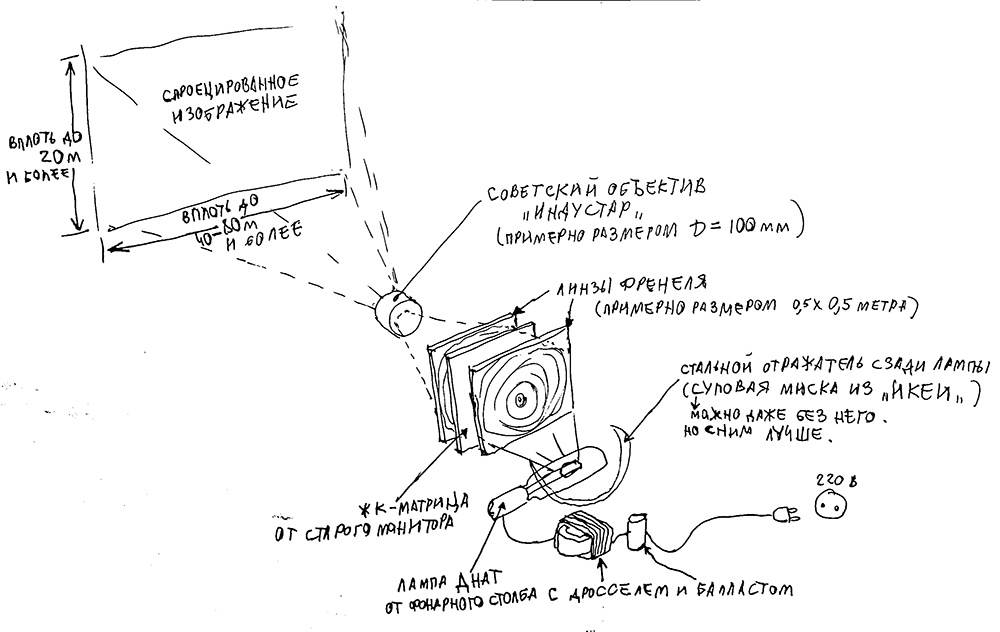 СПРОЕЦИРОВАННОЕ
ИЗОБРАЖЕНИЕ
ВПЛОТЬ ДО
20М
И БОЛЕЕ
ВПЛОТЬ ДО
40-80м
И БОЛЕЕ
СОВЕТСКИЙ ОБЪЕКТИВ
„ИНДУСТАР„
(ПРИМЕРНО РАЗМЕРОМ D = 100 ММ)
ЛИНЗЫ ФРЕНЕЛЯ
(ПРИМЕРНО РАЗМЕРОМ 0,5 Х 0,5 МЕТРА)
СТАЛЬНОЙ ОТРАЖАТЕЛЬ СЗАДИ ЛАМПЫ
(СУПОВАЯ МИСКА ИЗ „ИКЕИ„)
МОЖНО ДАЖЕ БЕЗ НЕГО.
НО С НИМ ЛУЧШЕ.
220 В
ЖК-МАТРИЦА
ОТ СТАРОГО МОНИТОРА
ЛАМПА ДНАТ
ОТ ФОНАРНОГО СТОЛБА С ДРОССЕЛЕМ И БАЛЛАСТОМ